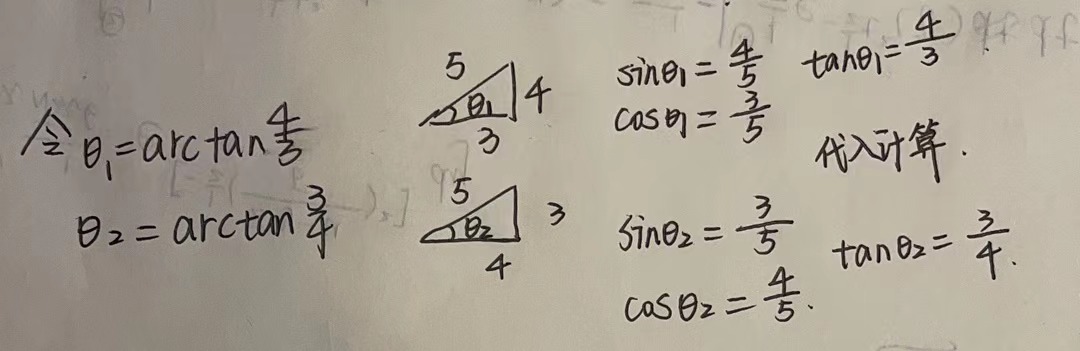 令 θ₁ = arctan 4/3
5 θ₁ 4 3
sinθ₁ = 4/5 tanθ₁ = 4/3 .
cosθ₁ = 3/5
代入计算 .
θ₂ = arctan 3/4
5 θ₂ 3 4
sinθ₂ = 3/5 tanθ₂ = 3/4 .
cosθ₂ = 4/5 .